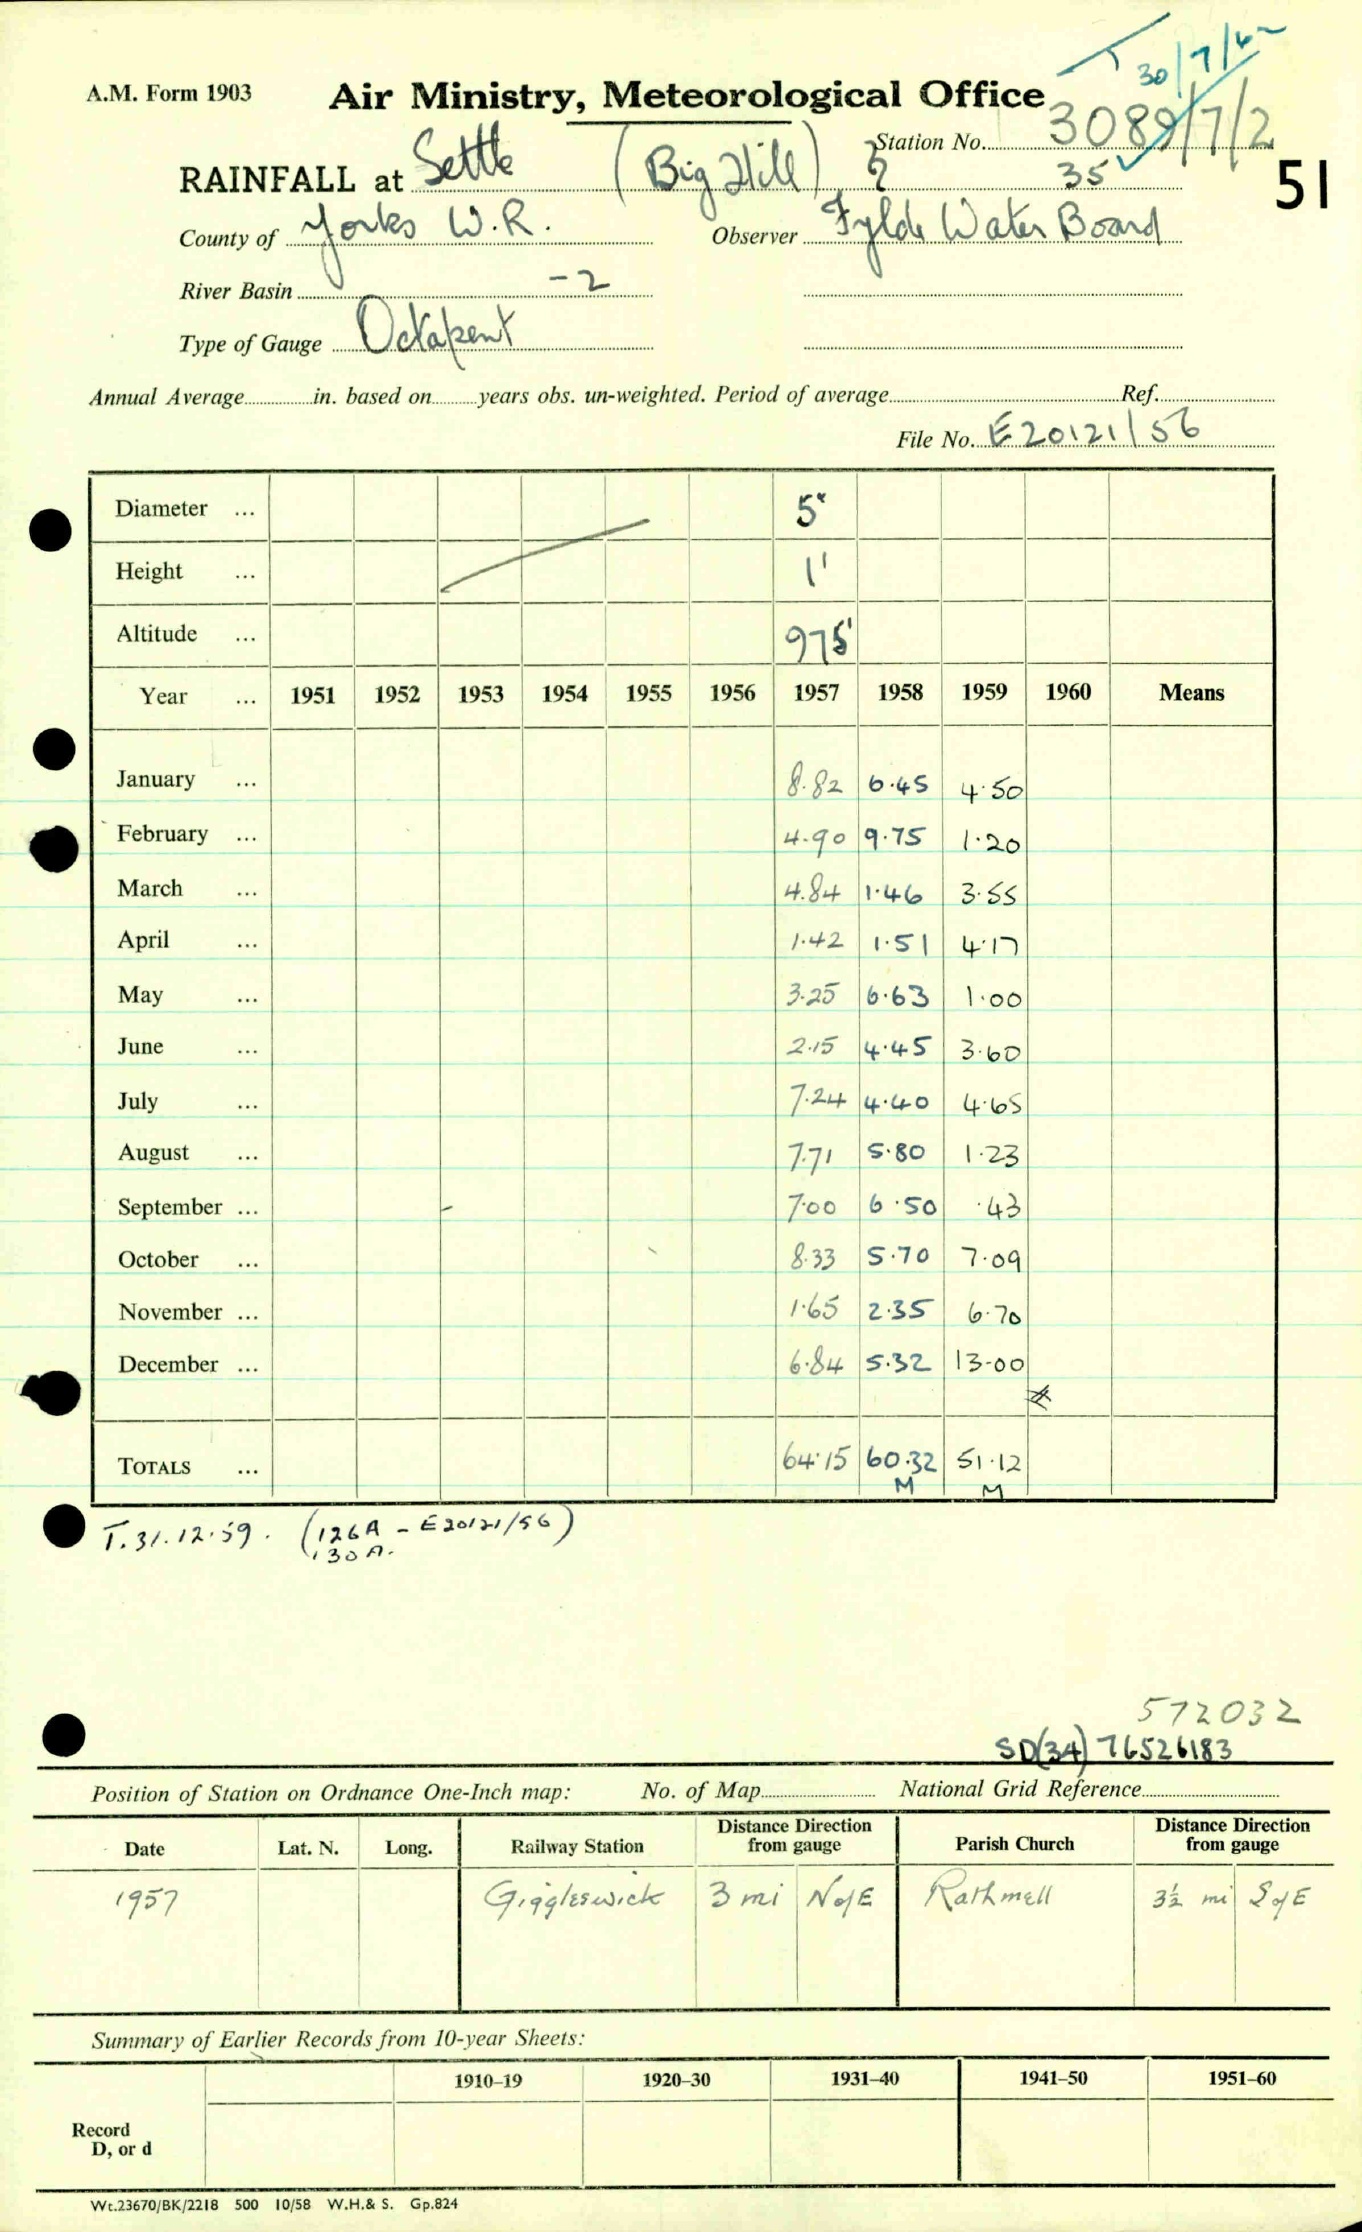 30/7/62
A.M. Form 1903 Air Ministry, Meteorological Office
Station No. 3089/7/2
RAINFALL at Settle (Big Hill) 35
51
County of Yorks W.R. Observer Fylde Water Board
River Basin -2
Type of Gauge Octapent
Annual Average in. based on years obs. un-weighted. Period of average Ref.
File No. E20121/56
Diameter ... 5"
Height ... 1'
Altitude ... 975'
Year ... 1951 1952 1953 1954 1955 1956 1957 1958 1959 1960 Means
January ... 8.82 6.45 4.50
February ... 4.90 9.75 1.20
March ... 4.84 1.46 3.55
April ... 1.42 1.51 4.17
May ... 3.25 6.63 1.00
June ... 2.15 4.45 3.60
July ... 7.24 4.40 4.65
August ... 7.71 5.80 1.23
September ... 7.00 6.50 .43
October ... 8.33 5.70 7.09
November ... 1.65 2.35 6.70
December ... 6.84 5.32 13.00
TOTALS ... 64.15 60.32 51.12
M M
T.31.12.59. (126A - E20121/56)
130A.
572032
SD(34) 76526183
Position of Station on Ordnance One-Inch map: No. of Map National Grid Reference
Date Lat. N. Long. Railway Station Distance Direction from gauge Parish Church Distance Direction from gauge
1957 Giggleswick 3 mi NofE Rathmell 3½ mi SofE
Summary of Earlier Records from 10-year Sheets:
1910–19 1920–30 1931–40 1941–50 1951–60
Record
D, or d
Wt.23670/BK/2218 500 10/58 W.H.& S. Gp.824